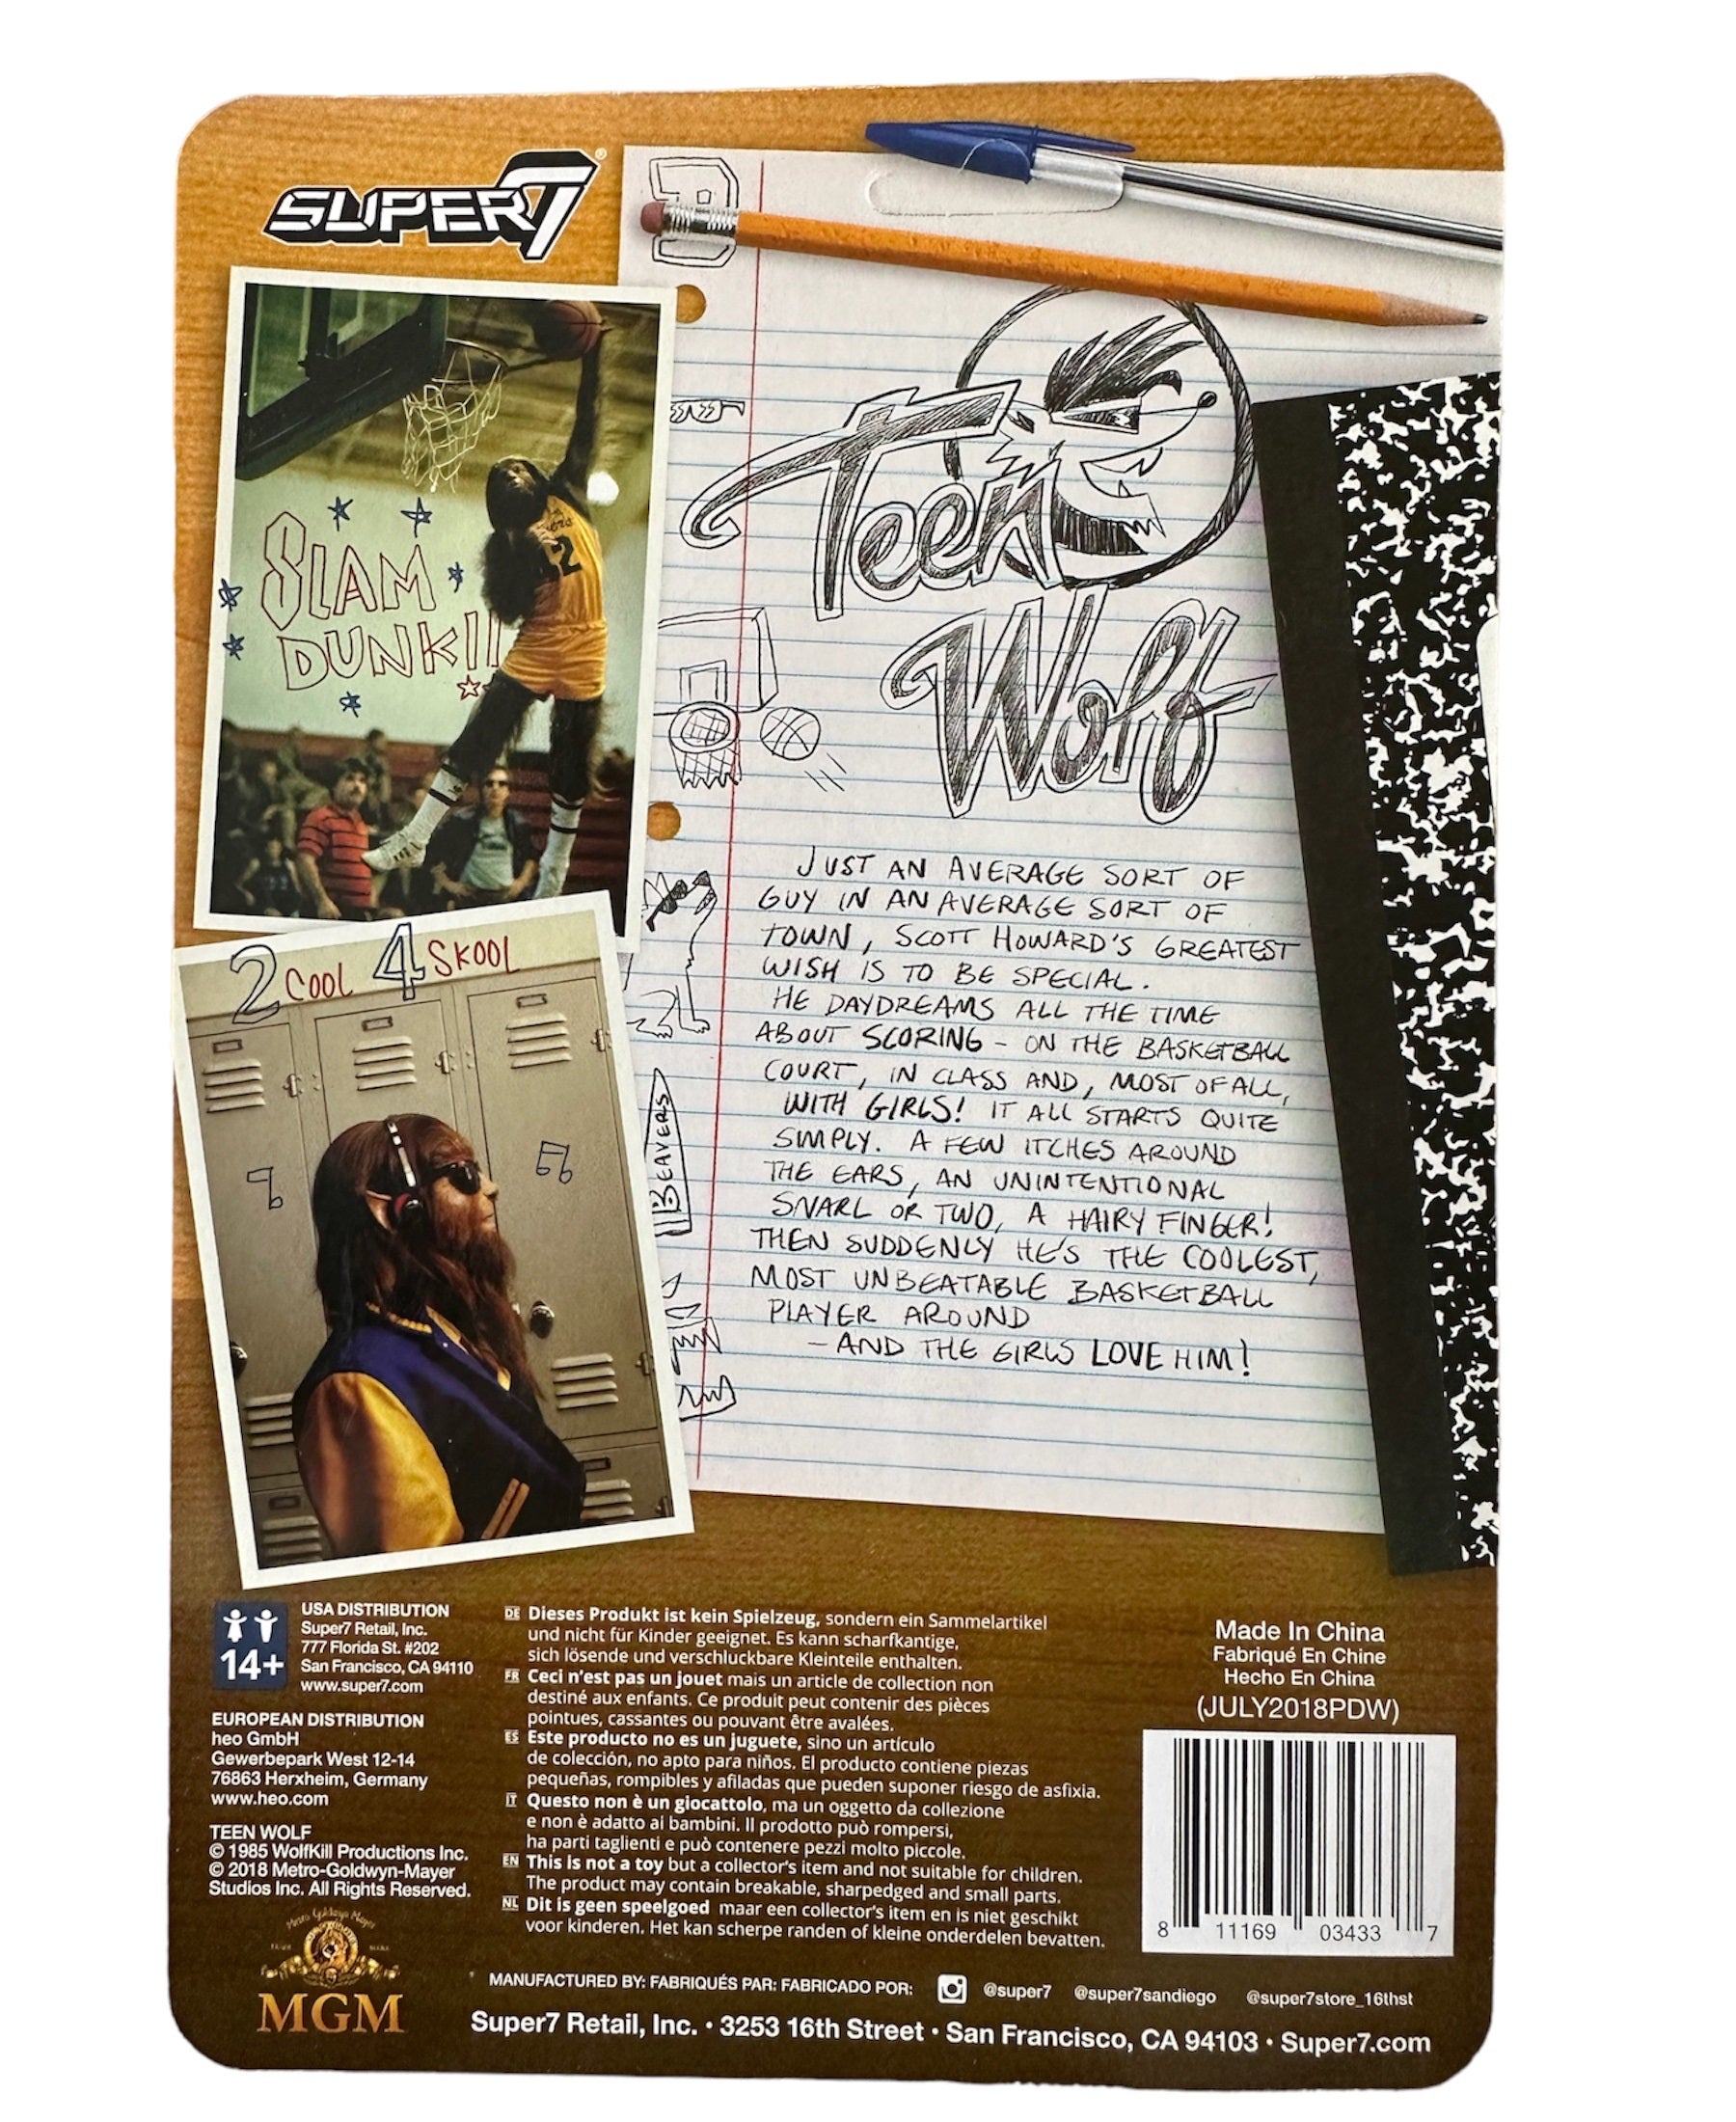 SUPER7®
SLAM
DUNK!!
2 COOL 4 SKOOL
Teen
Wolf
BEAVERS
JUST AN AVERAGE SORT OF
GUY IN AN AVERAGE SORT OF
TOWN, SCOTT HOWARD'S GREATEST
WISH IS TO BE SPECIAL.
HE DAYDREAMS ALL THE TIME
ABOUT SCORING - ON THE BASKETBALL
COURT, IN CLASS AND, MOST OF ALL,
WITH GIRLS! IT ALL STARTS QUITE
SIMPLY. A FEW ITCHES AROUND
THE EARS, AN UNINTENTIONAL
SNARL OR TWO, A HAIRY FINGER!
THEN SUDDENLY HE'S THE COOLEST,
MOST UNBEATABLE BASKETBALL
PLAYER AROUND
- AND THE GIRLS LOVE HIM!
14+
USA DISTRIBUTION
Super7 Retail, Inc.
777 Florida St. #202
San Francisco, CA 94110
www.super7.com
EUROPEAN DISTRIBUTION
heo GmbH
Gewerbepark West 12-14
76863 Herxheim, Germany
www.heo.com
TEEN WOLF
© 1985 WolfKill Productions Inc.
© 2018 Metro-Goldwyn-Mayer
Studios Inc. All Rights Reserved.
MGM
DE Dieses Produkt ist kein Spielzeug, sondern ein Sammelartikel
und nicht für Kinder geeignet. Es kann scharfkantige,
sich lösende und verschluckbare Kleinteile enthalten.
FR Ceci n'est pas un jouet mais un article de collection non
destiné aux enfants. Ce produit peut contenir des pièces
pointues, cassantes ou pouvant être avalées.
ES Este producto no es un juguete, sino un artículo
de colección, no apto para niños. El producto contiene piezas
pequeñas, rompibles y afiladas que pueden suponer riesgo de asfixia.
IT Questo non è un giocattolo, ma un oggetto da collezione
e non è adatto ai bambini. Il prodotto può rompersi,
ha parti taglienti e può contenere pezzi molto piccole.
EN This is not a toy but a collector's item and not suitable for children.
The product may contain breakable, sharpedged and small parts.
NL Dit is geen speelgoed maar een collector's item en is niet geschikt
voor kinderen. Het kan scherpe randen of kleine onderdelen bevatten.
Made In China
Fabriqué En Chine
Hecho En China
(JULY2018PDW)
8 11169 03433 7
MANUFACTURED BY: FABRIQUÉS PAR: FABRICADO POR: @super7 @super7sandiego @super7store_16thst
Super7 Retail, Inc. • 3253 16th Street • San Francisco, CA 94103 • Super7.com